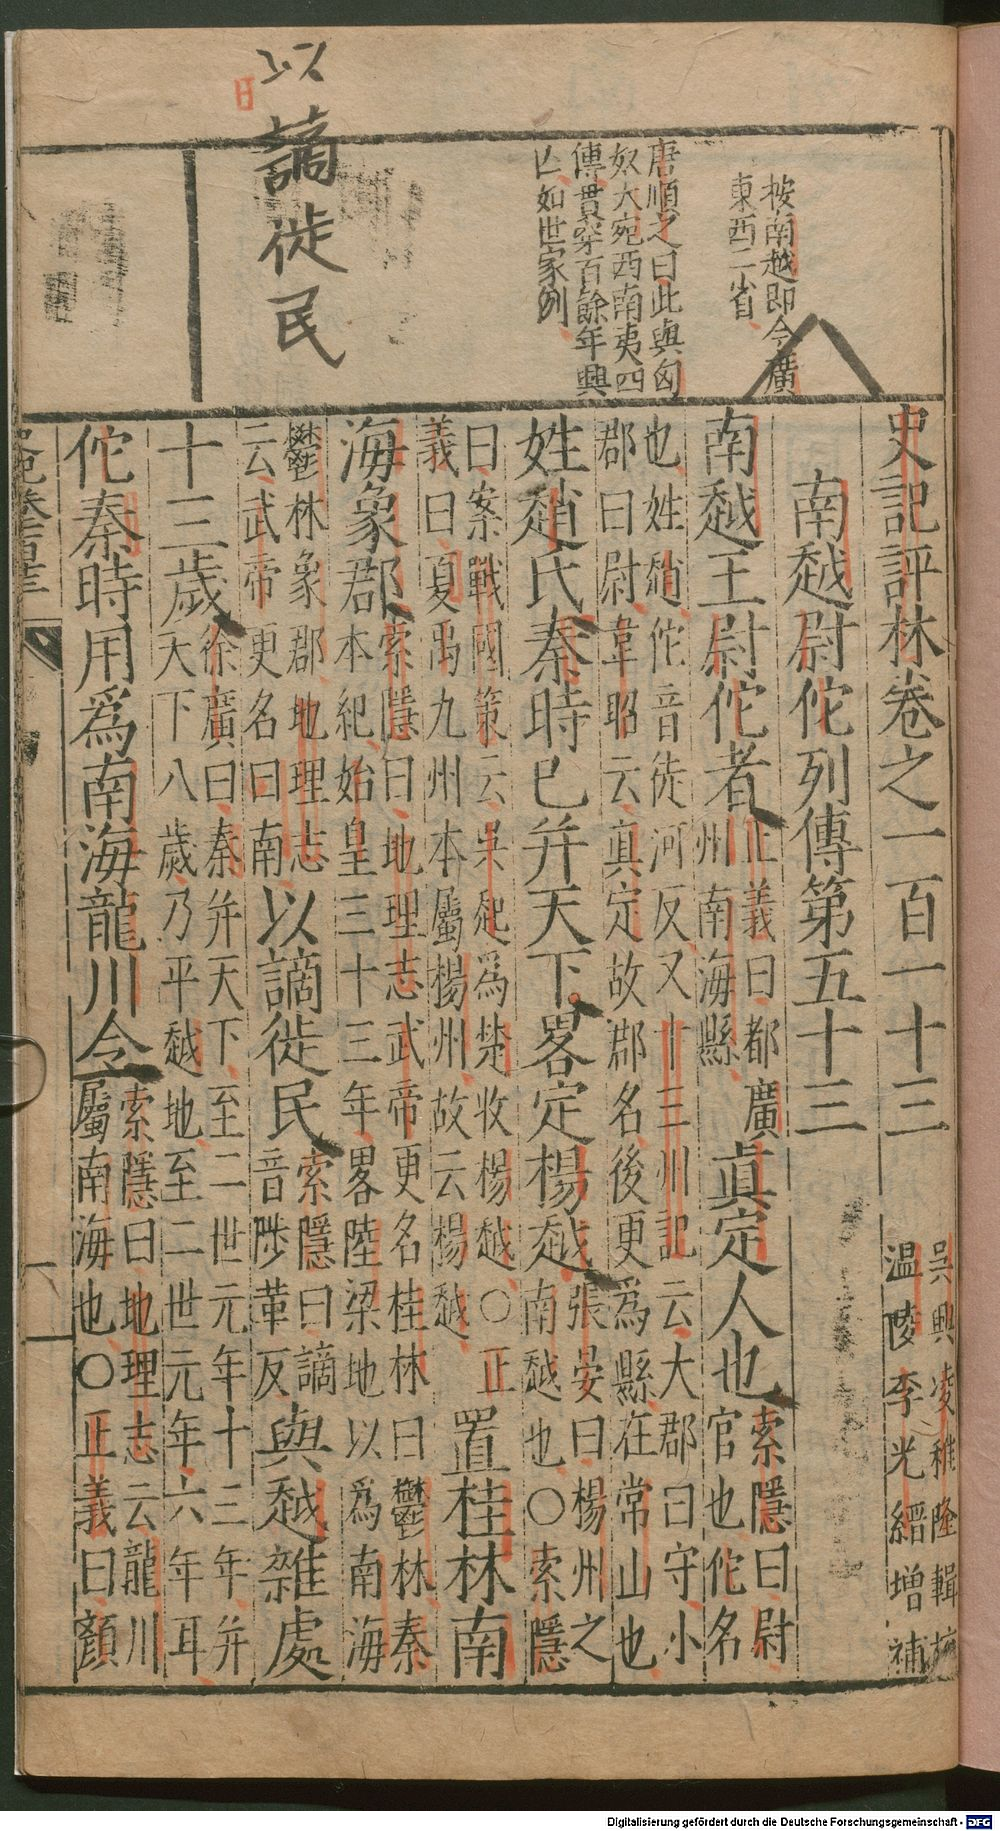 以謫徙民
日
按南越即今廣
東西二省
唐順之曰此與匈
奴大宛西南夷四
傳貫穿百餘年興
亡如世家例
史記評林卷之一百一十三
吳興凌稚隆輯校
溫陵李光縉增補
南越尉佗列傳第五十三
南越王尉佗者
正義曰都廣
州南海縣
真定人也
索隱曰尉
官也佗名
也姓趙佗音徒河反又十三州記云大郡曰守小
郡曰尉韋昭云真定故郡名後更為縣在常山也
姓趙氏秦時已并天下畧定楊越
張晏曰楊州之
南越也○索隱
曰案戰國策云吳起為楚收楊越○正
義曰夏禹九州本屬楊州故云楊越
置桂林南
海象郡
索隱曰地理志武帝更名桂林曰鬱林秦
本紀始皇三十三年畧陸梁地以為南海
鬱林象郡地理志
云武帝更名曰南
以謫徙民
索隱曰謫
音陟革反
與越雜處
十三歲
徐廣曰秦并天下至二世元年十三年并
天下八歲乃平越地至二世元年六年耳
佗秦時用爲南海龍川令
索隱曰地理志云龍川
屬南海也○正義曰顏
Digitalisierung gefördert durch die Deutsche Forschungsgemeinschaft - DFG